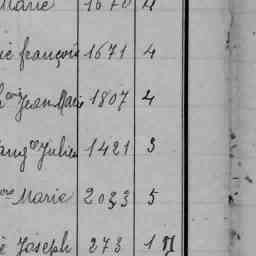 Marie 1670 4
françois 1671 4
Jean Marie 1807 4
Julien 1421 3
Marie 2033 5
Joseph 273 1